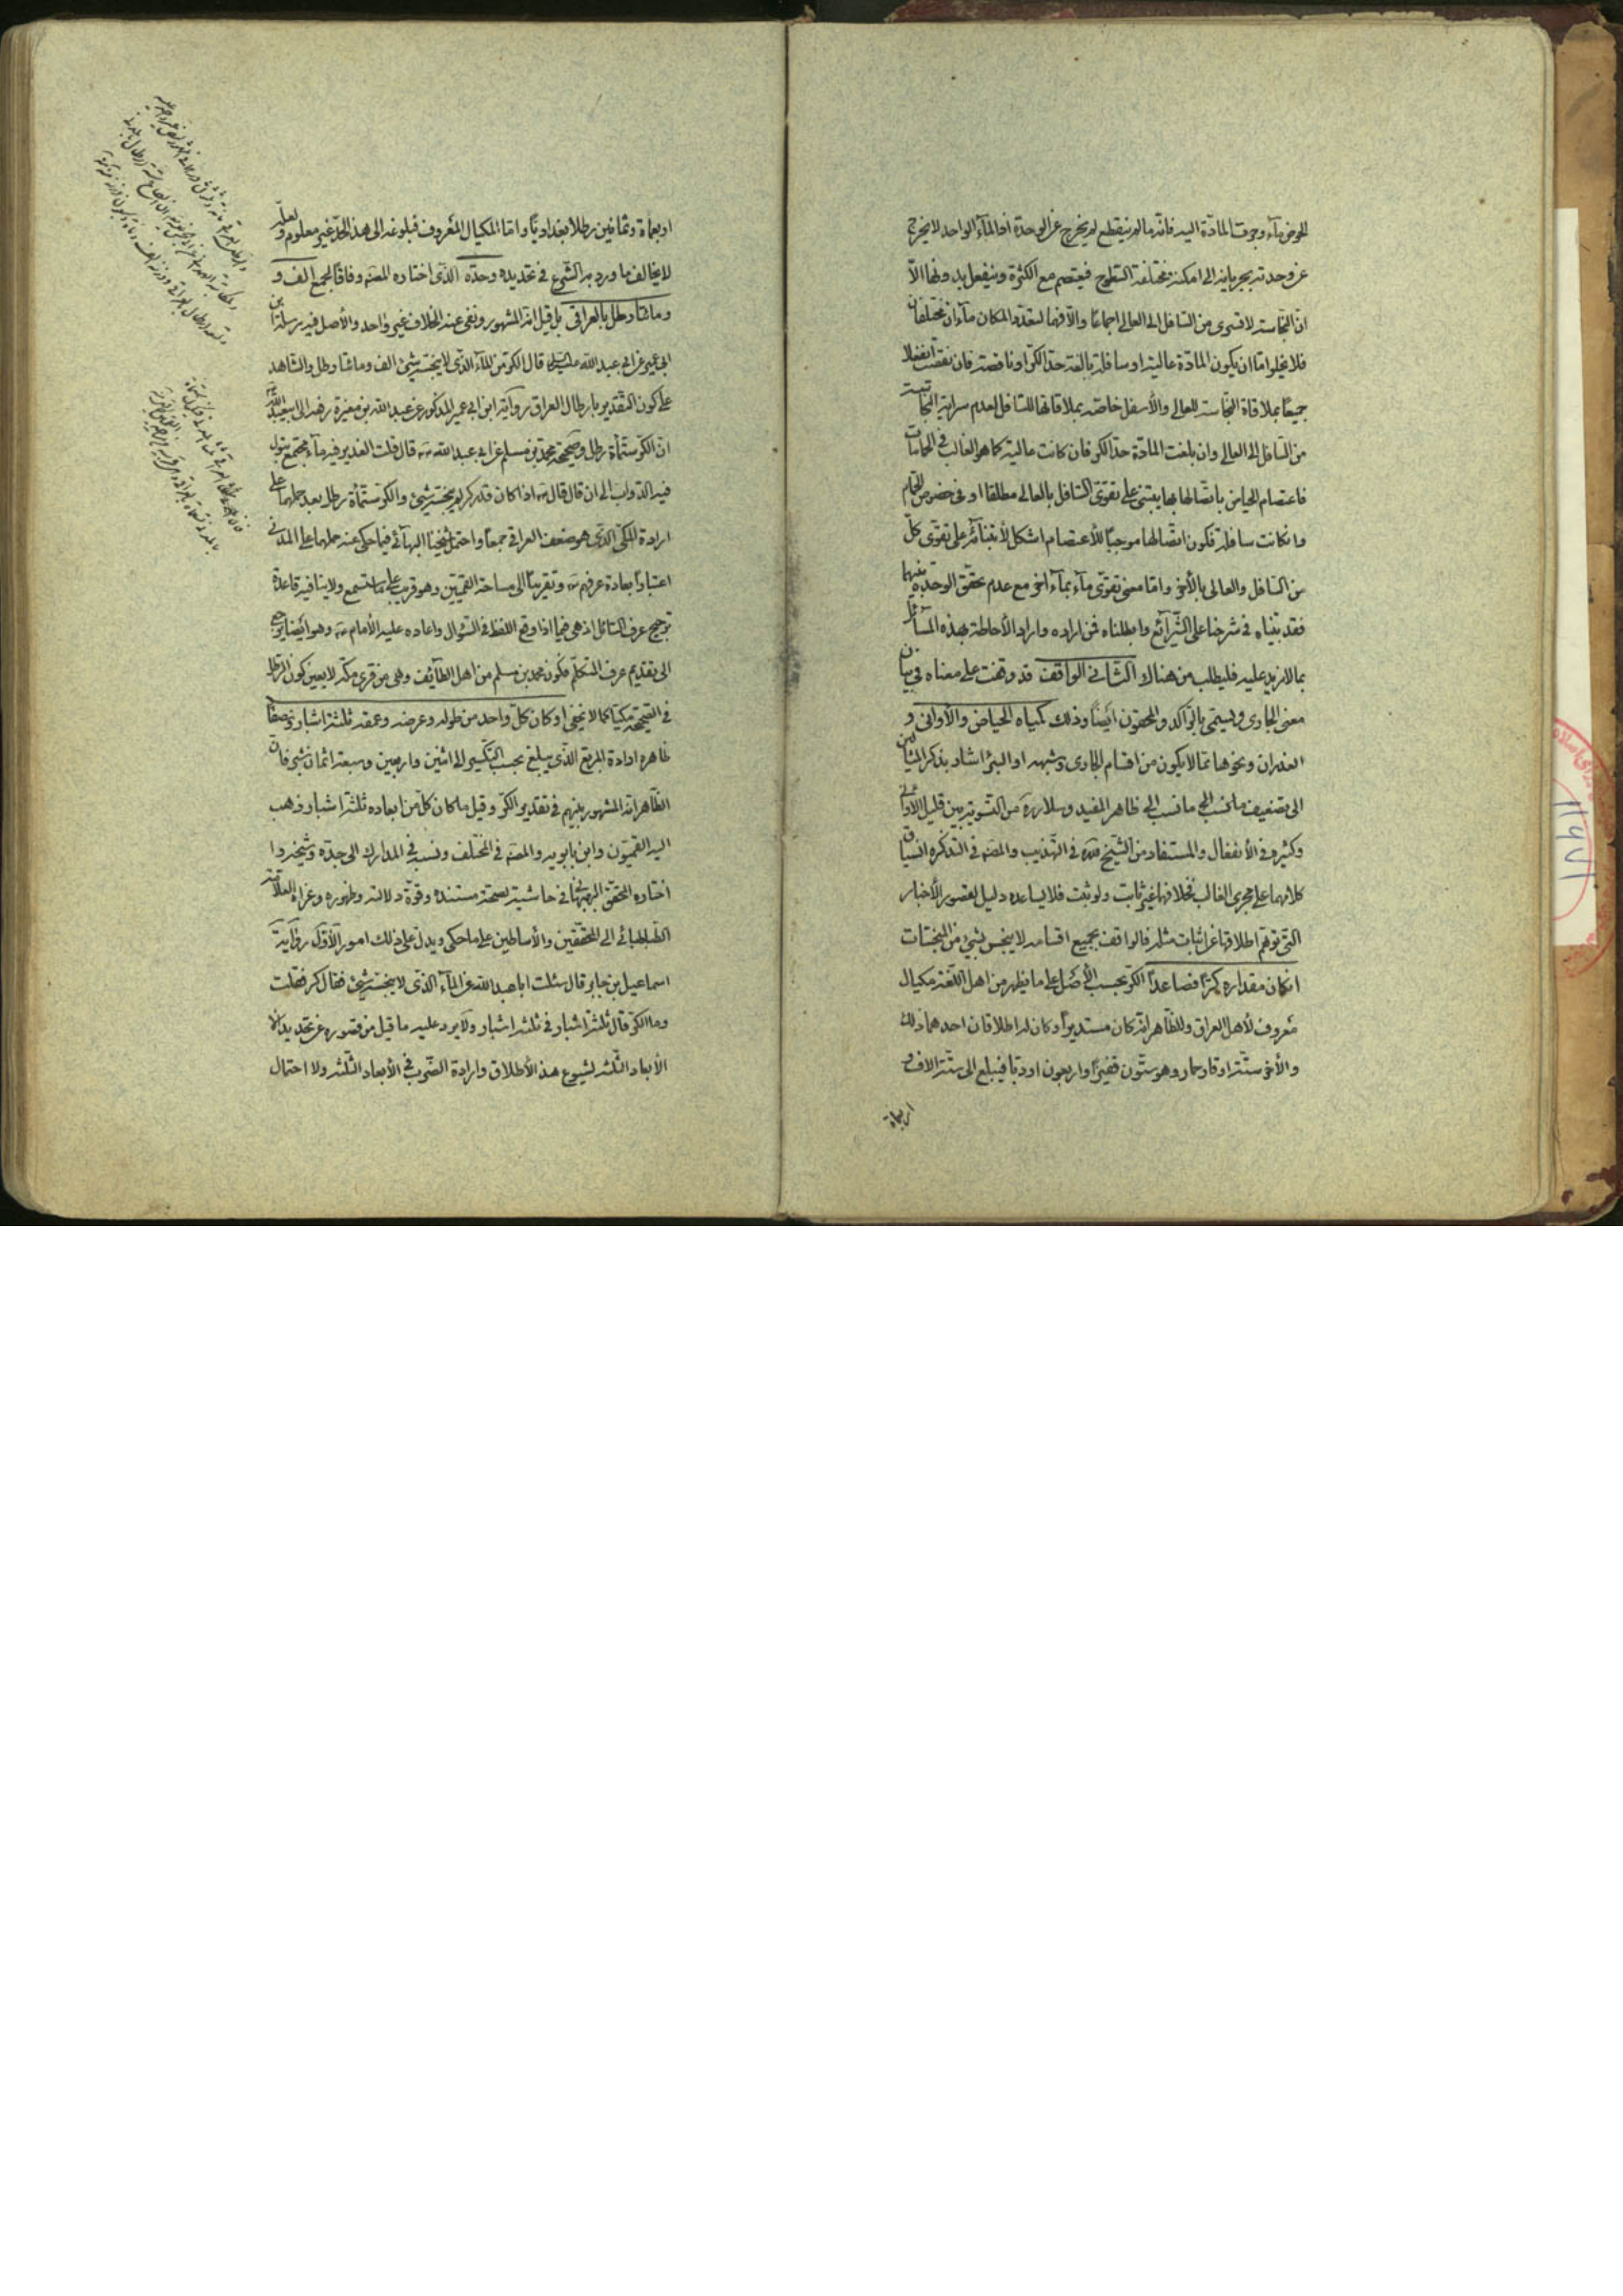 الحوض بماء وجرت المادّة اليه فانّه ما لم ينقطع لم يخرج عن الوحدة اذ المآء الواحد لا يخرج
عن وحدته بجريانه الى امكنة مختلفة السّطوح فيعتصم مع الكثرة وينفعل بدونها الاّ
انّ النّجاسة لا تسرى من السّافل الى العالى اجماعًا والاّ فهما لتعدّد المكان مآءان مختلفان
فلا يخلو امّا ان يكون المادّة عالية او سافلة بالغة حدّ الكرّ او ناقصة فان نقصت انفعلا
جميعًا بملاقاة النّجاسة للعالى والأسفل خاصّة بملاقاتها للسّافل لعدم سراية النّجاسة
من السّافل الى العالى وان بلغت المادّة حدّ الكرّ فان كانت عالية كما هو الغالب فى الحمّامات
فاعتصام الحياض باتّصالها بها يبتنى على تقوّى السّافل بالعالى مطلقا او فى خصوص الحمّام
وان كانت سافلة فكون اتّصالها موجبًا للأعتصام اشكل لأبتنائه على تقوّى كلّ
من السّافل والعالى بالأخر وامّا معنى تقوّى مآء بمآء اخر مع عدم تحقّق الوحدة بينهما
فقد بيّناه فى شرحنا على الشّرآئع وابطلناه فمن اراده واراد الأحاطة بهذه المسآئل
بما لا مزيد عليه فليطلب من هناك الثّانى الواقف قد وقفت على معناه فى بيان
معنى الجارى ويسمّى بالرّاكد والمحقون ايضًا وذلك كمياه الحياض والأوانى و
الغدران ونحوها ممّا لا يكون من اقسام الجارى وشبهه او البئر اشار بذكر المثالين
الى تضعيف ما نسب الى ظاهر المفيد وسلاّر ره من التّسوية بين قليل الاوانى
وكثيره فى الأنفعال والمستفاد من الشّيخ قده فى التّهذيب والمصّه فى التذكره انسياق
كلامهما على مجرى الغالب فخلافهما غير ثابت ولو ثبت فلا يساعده دليل لقصور الأخبار
الّتى توهّم اطلاقها عن اثبات مثله فالواقف بجميع اقسامه لا ينجس بشيء من المنجّسات
ان كان مقداره كرًّا فصاعداً الكرّ بحسب الأصل على ما يظهر من اهل اللّغة مكيال
معروف لأهل العراق والظّاهر انّه كان مستديرًا وكان له اطلاقان احدهما ذلك
والأخر ستّة اوقار حمار وهو ستّون قفيزًا واربعون اردبّا فيبلغ الى ستّة الاف و
اربعمأة
اربعمأة وثمانين رطلا بغداديًّا وامّا المكيال المعروف فبلوغه الى هذا الحدّ غير معلوم ولعلّه
لا يخالف ما ورد من الشّرع فى تحديده وحدّه الّذى اختاره المصّه وفاقًا لجمع الف و
ومائتا رطل بالعراقى بل قيل انّه المشهور ونفى عنه الخلاف غير واحد والأصل فيه مرسلة ابن
ابى عمير عن ابى عبد الله عليه السّلم قال الكرّ من المآء الّذى لا ينجّسه شىء الف ومائتا رطل والشّاهد
على كون التّقدير بارطال العراق رواية ابن ابى عمير المذكور عن عبد الله بن مغيرة رفعه الى ابى عبد الله ع
انّ الكرّ ستّمأة رطل وصحيحة محمّد بن مسلم عن ابى عبد الله ع قال قلت الغدير فيه مآء مجتمع تبول
فيه الدّوابّ الى ان قال قال ع اذا كان قدر كرّ لم ينجّسه شىء والكرّ ستّمأة رطل بعد حملهما على
ارادة المكّى الّذى هو ضعف العراقى جمعًا واحتمل شيخنا البهآئى فيما حكى عنه حملهما على المدنى
اعتبارًا بعادة عرفهم ع وتقريبًا الى مساحة القمّيّين وهو قريب على ما ستسمع ولا ينافيه قاعدة
ترجيح عرف السّائل اذ هى فيما اذا وقع اللّفظ فى السّؤال واعاده عليه الأمام ع وهو ايضا يرجع
الى تقديم عرف المتكلّم فكون محمد بن مسلم من اهل الطّآئف وهى من قرى مكّة لا يعيّن كون الرّطل
فى الصّحيحة مكيّا كما لا يخفى او كان كلّ واحد من طوله وعرضه وعمقه ثلثة اشبار ونصفًا
ظاهره ارادة المربّع الّذى يبلغ بحسب التّكسير الى اثنين واربعين وسبعة اثمان شبر فان
الظّاهر انّه المشهور بينهم فى تقدير الكرّ وقيل ما كان كلّ من ابعاده ثلثة اشبار وذهب
اليه القمّيّون وابن بابويه والمصّه فى المختلف ونسبه فى المدارك الى جدّه وشيخه و ا
اختاره المحقّق البهبهانى فى حاشيته لصحّة مستنده وقوّة دلالته وظهوره وعزاه العلاّمة
الطّباطبائى الى المحقّقين والأساطين على ما حكى ويدلّ على ذلك امور الأوّل رواية
اسماعيل بن جابر قال سئلت ابا عبد الله عن المآء الّذى لا ينجّسه شىء فقال كر فقلت
وما الكرّ قال ثلثة اشبار فى ثلثة اشبار ولا يرد عليه ما قيل من قصوره عن تحديد
الأبعاد الثّلثه لشيوع هذا الأطلاق وارادة الضّرب فى الأبعاد الثّلثه ولا احتمال